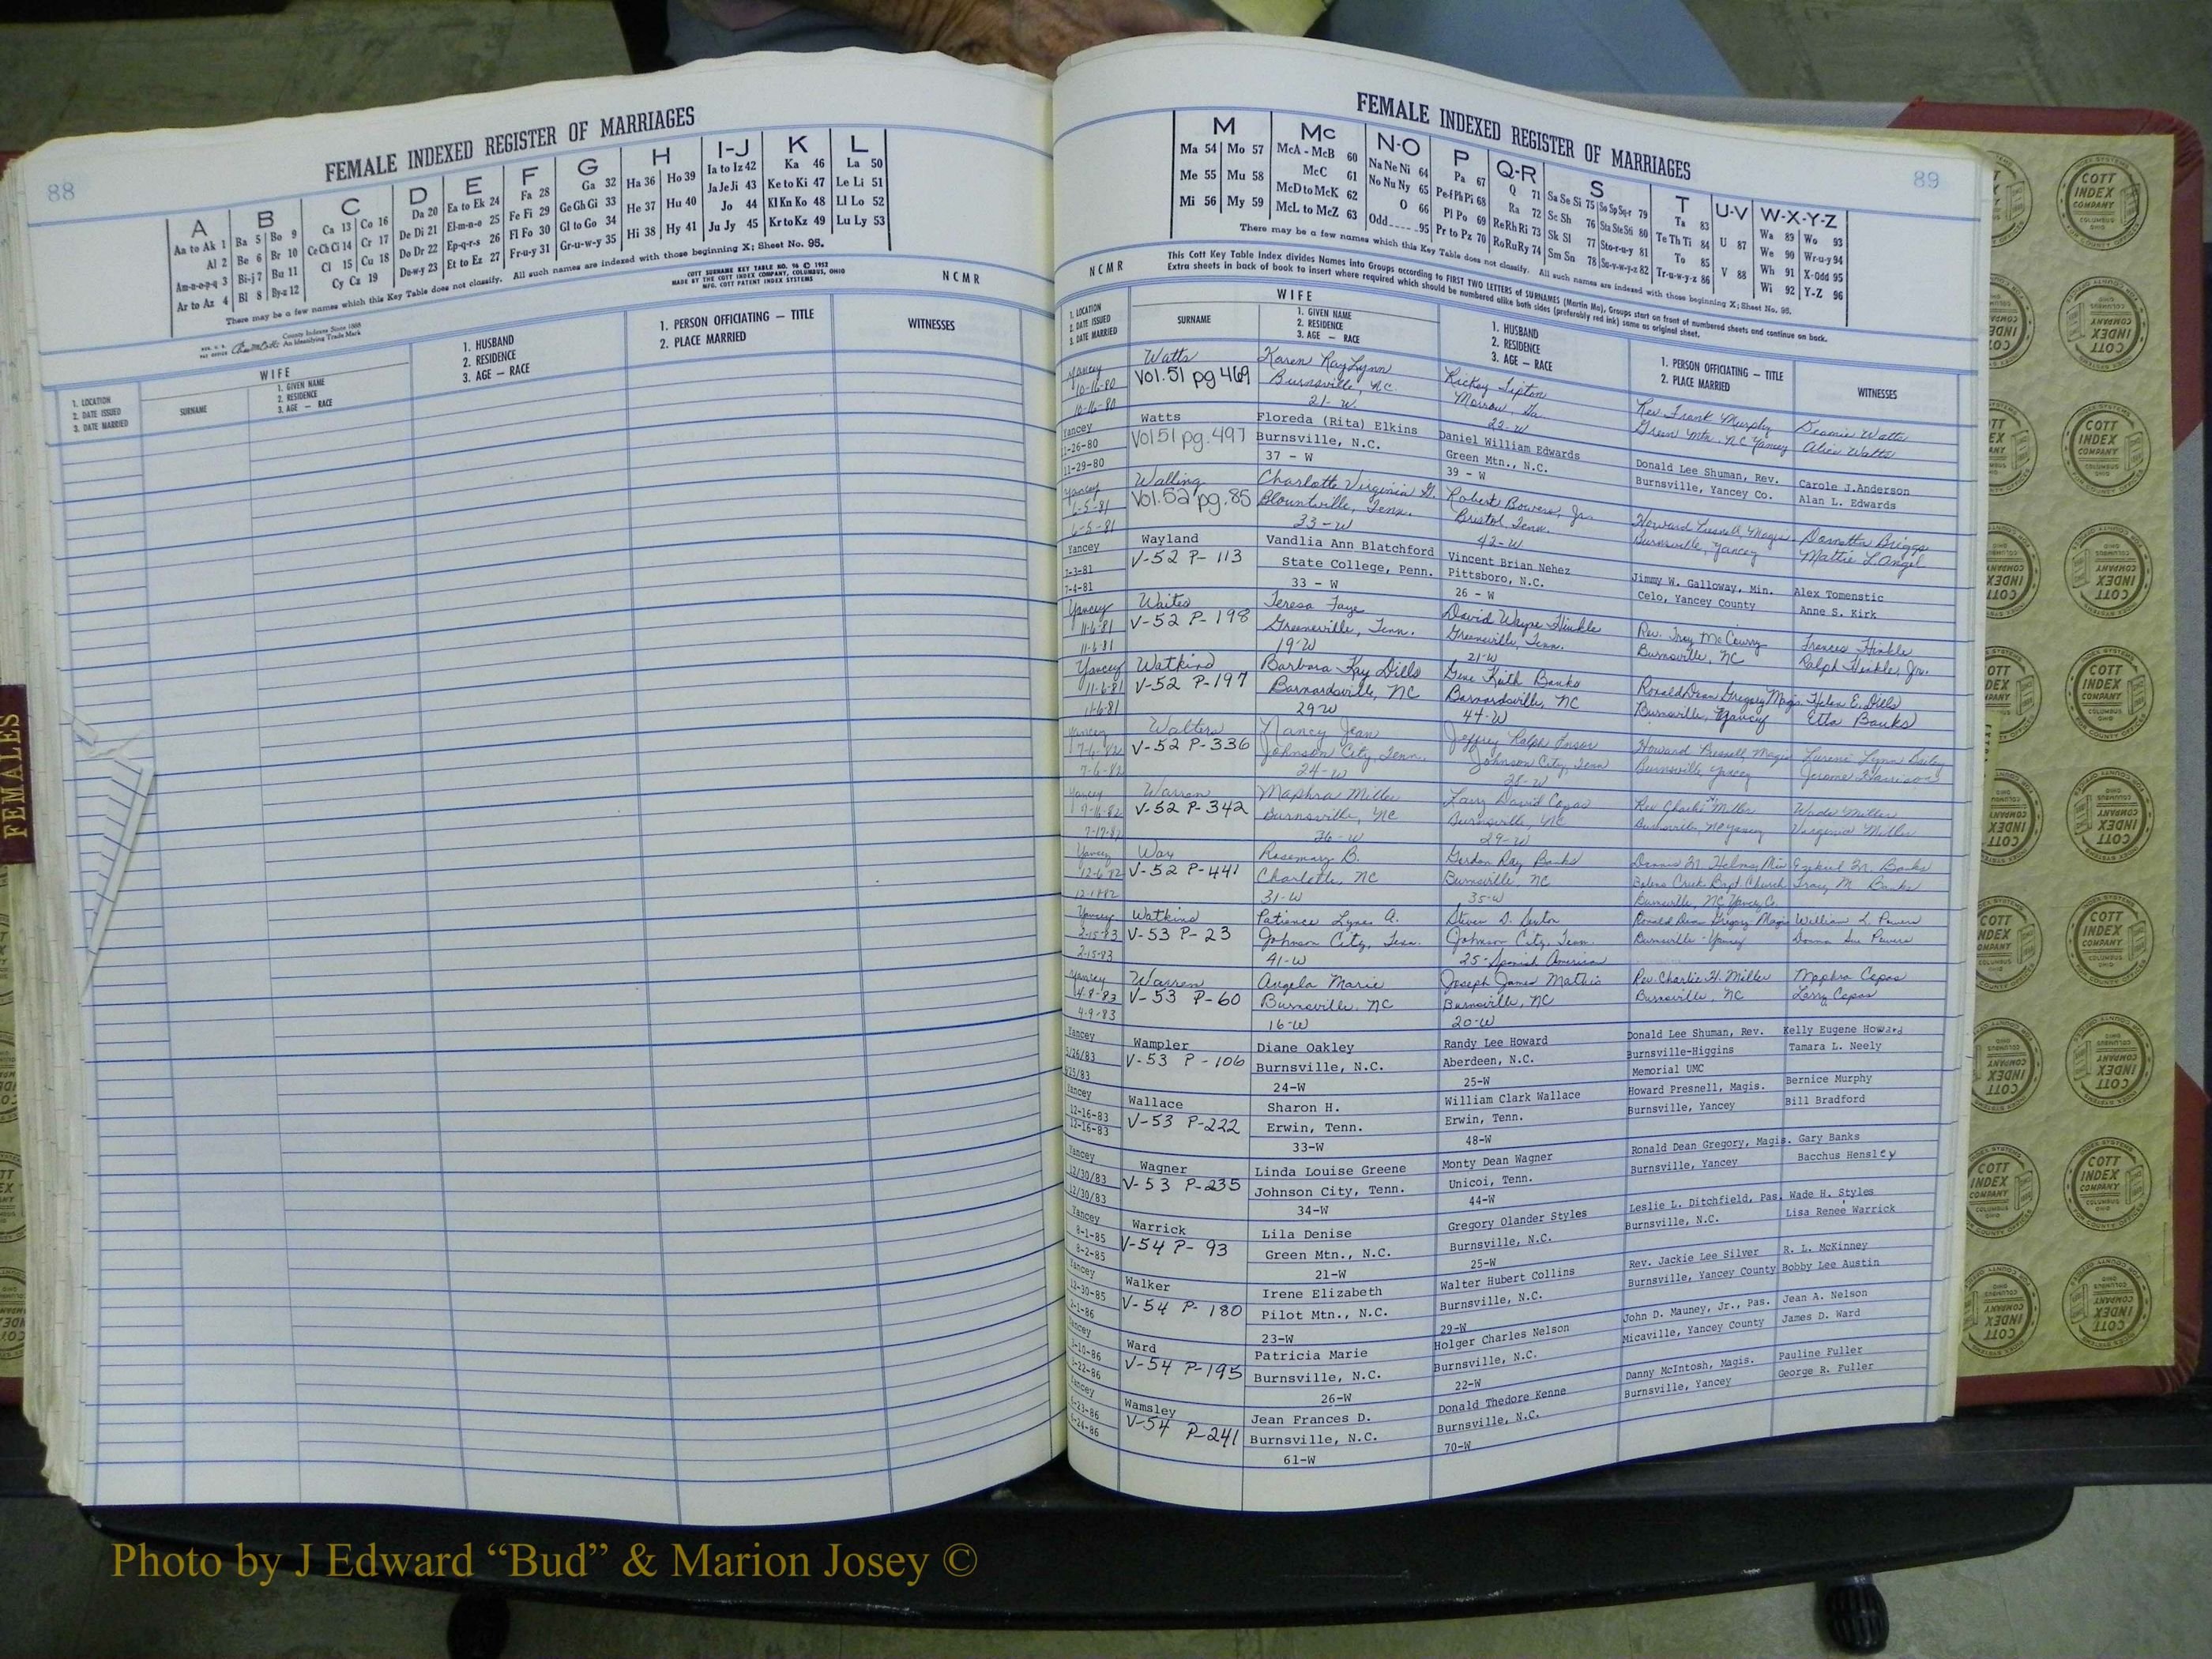 88
FEMALE INDEXED REGISTER OF MARRIAGES
A B C D E F G H I-J K L
Aa to Ak 1 Ba 5 Bo 9 Ca 13 Co 16 Da 20 Ea to Ek 24 Fa 28 Ga 32 Ha 36 Ho 39 Ia to Iz 42 Ka 46 La 50
Al 2 Be 6 Br 10 Ce Ch Ci 14 Cr 17 De Di 21 El-m-n-o 25 Fe Fi 29 Ge Gh Gi 33 He 37 Hu 40 Ja Je Ji 43 Ke to Ki 47 Le Li 51
Am-n-o-p-q 3 Bi-j 7 Bu 11 Cl 15 Cu 18 Do Dr 22 Ep-q-r-s 26 Fl Fo 30 Gl to Go 34 Hi 38 Hy 41 Jo 44 Kl Kn Ko 48 Ll Lo 52
Ar to Az 4 Bl 8 By-z 12 Cy Cz 19 Du-w-y 23 Et to Ez 27 Fr-u-y 31 Gr-u-w-y 35 Ju Jy 45 Kr to Kz 49 Lu Ly 53
There may be a few names which this Key Table does not classify. All such names are indexed with those beginning X; Sheet No. 95.
COTT SURNAME KEY TABLE NO. 96 © 1952
MADE BY THE COTT INDEX COMPANY, COLUMBUS, OHIO
MFG. COTT PATENT INDEX SYSTEMS
N C M R
County Indexes Since 1888
An Identifying Trade Mark
WIFE
1. LOCATION
2. DATE ISSUED
3. DATE MARRIED
SURNAME
1. GIVEN NAME
2. RESIDENCE
3. AGE — RACE
1. HUSBAND
2. RESIDENCE
3. AGE — RACE
1. PERSON OFFICIATING — TITLE
2. PLACE MARRIED
WITNESSES
FEMALES
FEMALE INDEXED REGISTER OF MARRIAGES
89
M Mc N-O P Q-R S T U-V W-X-Y-Z
Ma 54 Mo 57 McA - McB 60 Na Ne Ni 64 Pa 67 Q 71 Sa Se Si 75 So Sp Sq-r 79 Ta 83 U 87 Wa 89 Wo 93
Me 55 Mu 58 McC 61 No Nu Ny 65 Pe-f Ph Pi 68 Ra 72 Sc Sh 76 Sta Ste Sti 80 Te Th Ti 84 V 88 We 90 Wr-u-y 94
Mi 56 My 59 McD to McK 62 O 66 Pl Po 69 Re Rh Ri 73 Sk Sl 77 Sto-r-u-y 81 To 85 Wh 91 X-Odd 95
McL to McZ 63 Odd 95 Pr to Pz 70 Ro Ru Ry 74 Sm Sn 78 Su-v-w-y-z 82 Tr-u-w-y-z 86 Wi 92 Y-Z 96
There may be a few names which this Key Table does not classify. All such names are indexed with those beginning X; Sheet No. 95.
N C M R
This Cott Key Table Index divides Names into Groups according to FIRST TWO LETTERS of SURNAMES (Martin Ma). Groups start on front of numbered sheets and continue on back.
Extra sheets in back of book to insert where required which should be numbered alike both sides (preferably red ink) same as original sheet.
WIFE
1. LOCATION
2. DATE ISSUED
3. DATE MARRIED
SURNAME
1. GIVEN NAME
2. RESIDENCE
3. AGE — RACE
1. HUSBAND
2. RESIDENCE
3. AGE — RACE
1. PERSON OFFICIATING — TITLE
2. PLACE MARRIED
WITNESSES
Yancey Watts Karen Ray Lynn Rickey Tipton Rev. Frank Murphy Watts
10-16-80 Vol. 51 pg 469 Burnsville, N.C. Morrow, Ga. Green Mtn. NC Yancey Alice Watts
10-16-80 21-W. 22-W
Yancey Watts Floreda (Rita) Elkins Daniel William Edwards Donald Lee Shuman, Rev. Carole J. Anderson
-26-80 Vol 51 pg. 497 Burnsville, N.C. Green Mtn., N.C. Burnsville, Yancey Co. Alan L. Edwards
11-29-80 37 - W 39 - W
Yancey Walling Charlotte Virginia G. Robert Bowers, Jr. Howard Presnell, Magis. Dornetta Briggs
6-5-81 Vol. 52 pg. 85 Blountville, Tenn. Bristol, Tenn. Burnsville, Yancey Mattie L. Angel
6-5-81 33-W 42-W
Yancey Wayland Vandlia Ann Blatchford Vincent Brian Nehez Jimmy W. Galloway, Min. Alex Tomenstic
7-3-81 V-52 P- 113 State College, Penn. Pittsboro, N.C. Celo, Yancey County Anne S. Kirk
7-4-81 33 - W 26 - W
Yancey Waites Teresa Faye David Wayne Hinkle Rev. Troy McCurry Frances Hinkle
11-6-81 V-52 P- 198 Greeneville, Tenn. Greeneville, Tenn. Burnsville, NC Ralph Hinkle, Jr.
11-6-81 19-W 21-W
Yancey Watkins Barbara Kay Dills Gene Keith Banks Ronald Dean Gregory Magis. Helen E. Dills
11-6-81 V-52 P-197 Barnardsville, NC Barnardsville, NC Burnsville, Yancey Etta Banks
11-6-81 29W 44-W
Yancey Walters Nancy Jean Jeffrey Ralph Howard Presnell, Magis
7-6-82 V-52 P-336 Johnson City, Tenn. Johnson City, Tenn Burnsville, Yancey Jerome Harrison
7-6-82 24-W 28-W
Yancey Warren Maphra Miller Larry David Copas Rev. Charlie H. Miller Wade Miller
7-16-82 V-52 P-342 Burnsville, NC Burnsville, NC Burnsville, NC Yancey Virginia Miller
7-17-82 36-W 29-W
Yancey Way Rosemary B. Gordon Ray Banks Dennis M. Helms, Min Ezekiel M. Banks
12-6-82 V-52 P-441 Charlotte, NC Burnsville, NC Bolens Creek Bapt. Church Tracy M. Banks
31-W 35-W Burnsville, NC Yancey Co.
Yancey Watkins Patience Lynes A. Steven D. Sexton Ronald Dean Gregory - Magis William L. Powers
2-15-83 V-53 P- 23 Johnson City, Tenn. Johnson City, Tenn. Burnsville - Yancey Donna Sue Powers
2-15-83 41-W 25-Spanish American
Yancey Warren Angela Marie Joseph James Mathis Rev. Charlie H. Miller Maphra Copas
4-8-83 V- 53 P-60 Burnsville, NC Burnsville, NC Burnsville, NC Larry Copas
4-9-83 16-W 20-W
Yancey Wampler Diane Oakley Randy Lee Howard Donald Lee Shuman, Rev. Kelly Eugene Howard
5/26/83 V-53 P - 106 Burnsville, N.C. Aberdeen, N.C. Burnsville-Higgins Tamara L. Neely
/25/83 24-W 25-W Memorial UMC
Yancey Wallace Sharon H. William Clark Wallace Howard Presnell, Magis. Bernice Murphy
12-16-83 V-53 P-222 Erwin, Tenn. Erwin, Tenn. Burnsville, Yancey Bill Bradford
12-16-83 33-W 48-W
Yancey Wagner Linda Louise Greene Monty Dean Wagner Ronald Dean Gregory, Magis. Gary Banks
12/30/83 V-53 P-235 Johnson City, Tenn. Unicoi, Tenn. Burnsville, Yancey Bacchus Hensley
12/30/83 34-W 44-W
Yancey Warrick Lila Denise Gregory Olander Styles Leslie L. Ditchfield, Pas. Wade H. Styles
8-1-85 V-54 P- 93 Green Mtn., N.C. Burnsville, N.C. Burnsville, N.C. Lisa Renee Warrick
8-2-85 21-W 25-W
Yancey Walker Irene Elizabeth Walter Hubert Collins Rev. Jackie Lee Silver R. L. McKinney
12-30-85 V-54 P- 180 Pilot Mtn., N.C. Burnsville, N.C. Burnsville, Yancey County Bobby Lee Austin
2-1-86 23-W 29-W
Yancey Ward Patricia Marie Holger Charles Nelson John D. Mauney, Jr., Pas. Jean A. Nelson
-10-86 V-54 P-195 Burnsville, N.C. Burnsville, N.C. Micaville, Yancey County James D. Ward
-22-86 26-W 22-W
Yancey Wamsley Jean Frances D. Donald Thedore Kenne Danny McIntosh, Magis. Pauline Fuller
-23-86 V-54 P-241 Burnsville, N.C. Burnsville, N.C. Burnsville, Yancey George R. Fuller
-24-86 61-W 70-W
COTT
INDEX
COMPANY
COLUMBUS
OHIO
Photo by J Edward “Bud” & Marion Josey ©